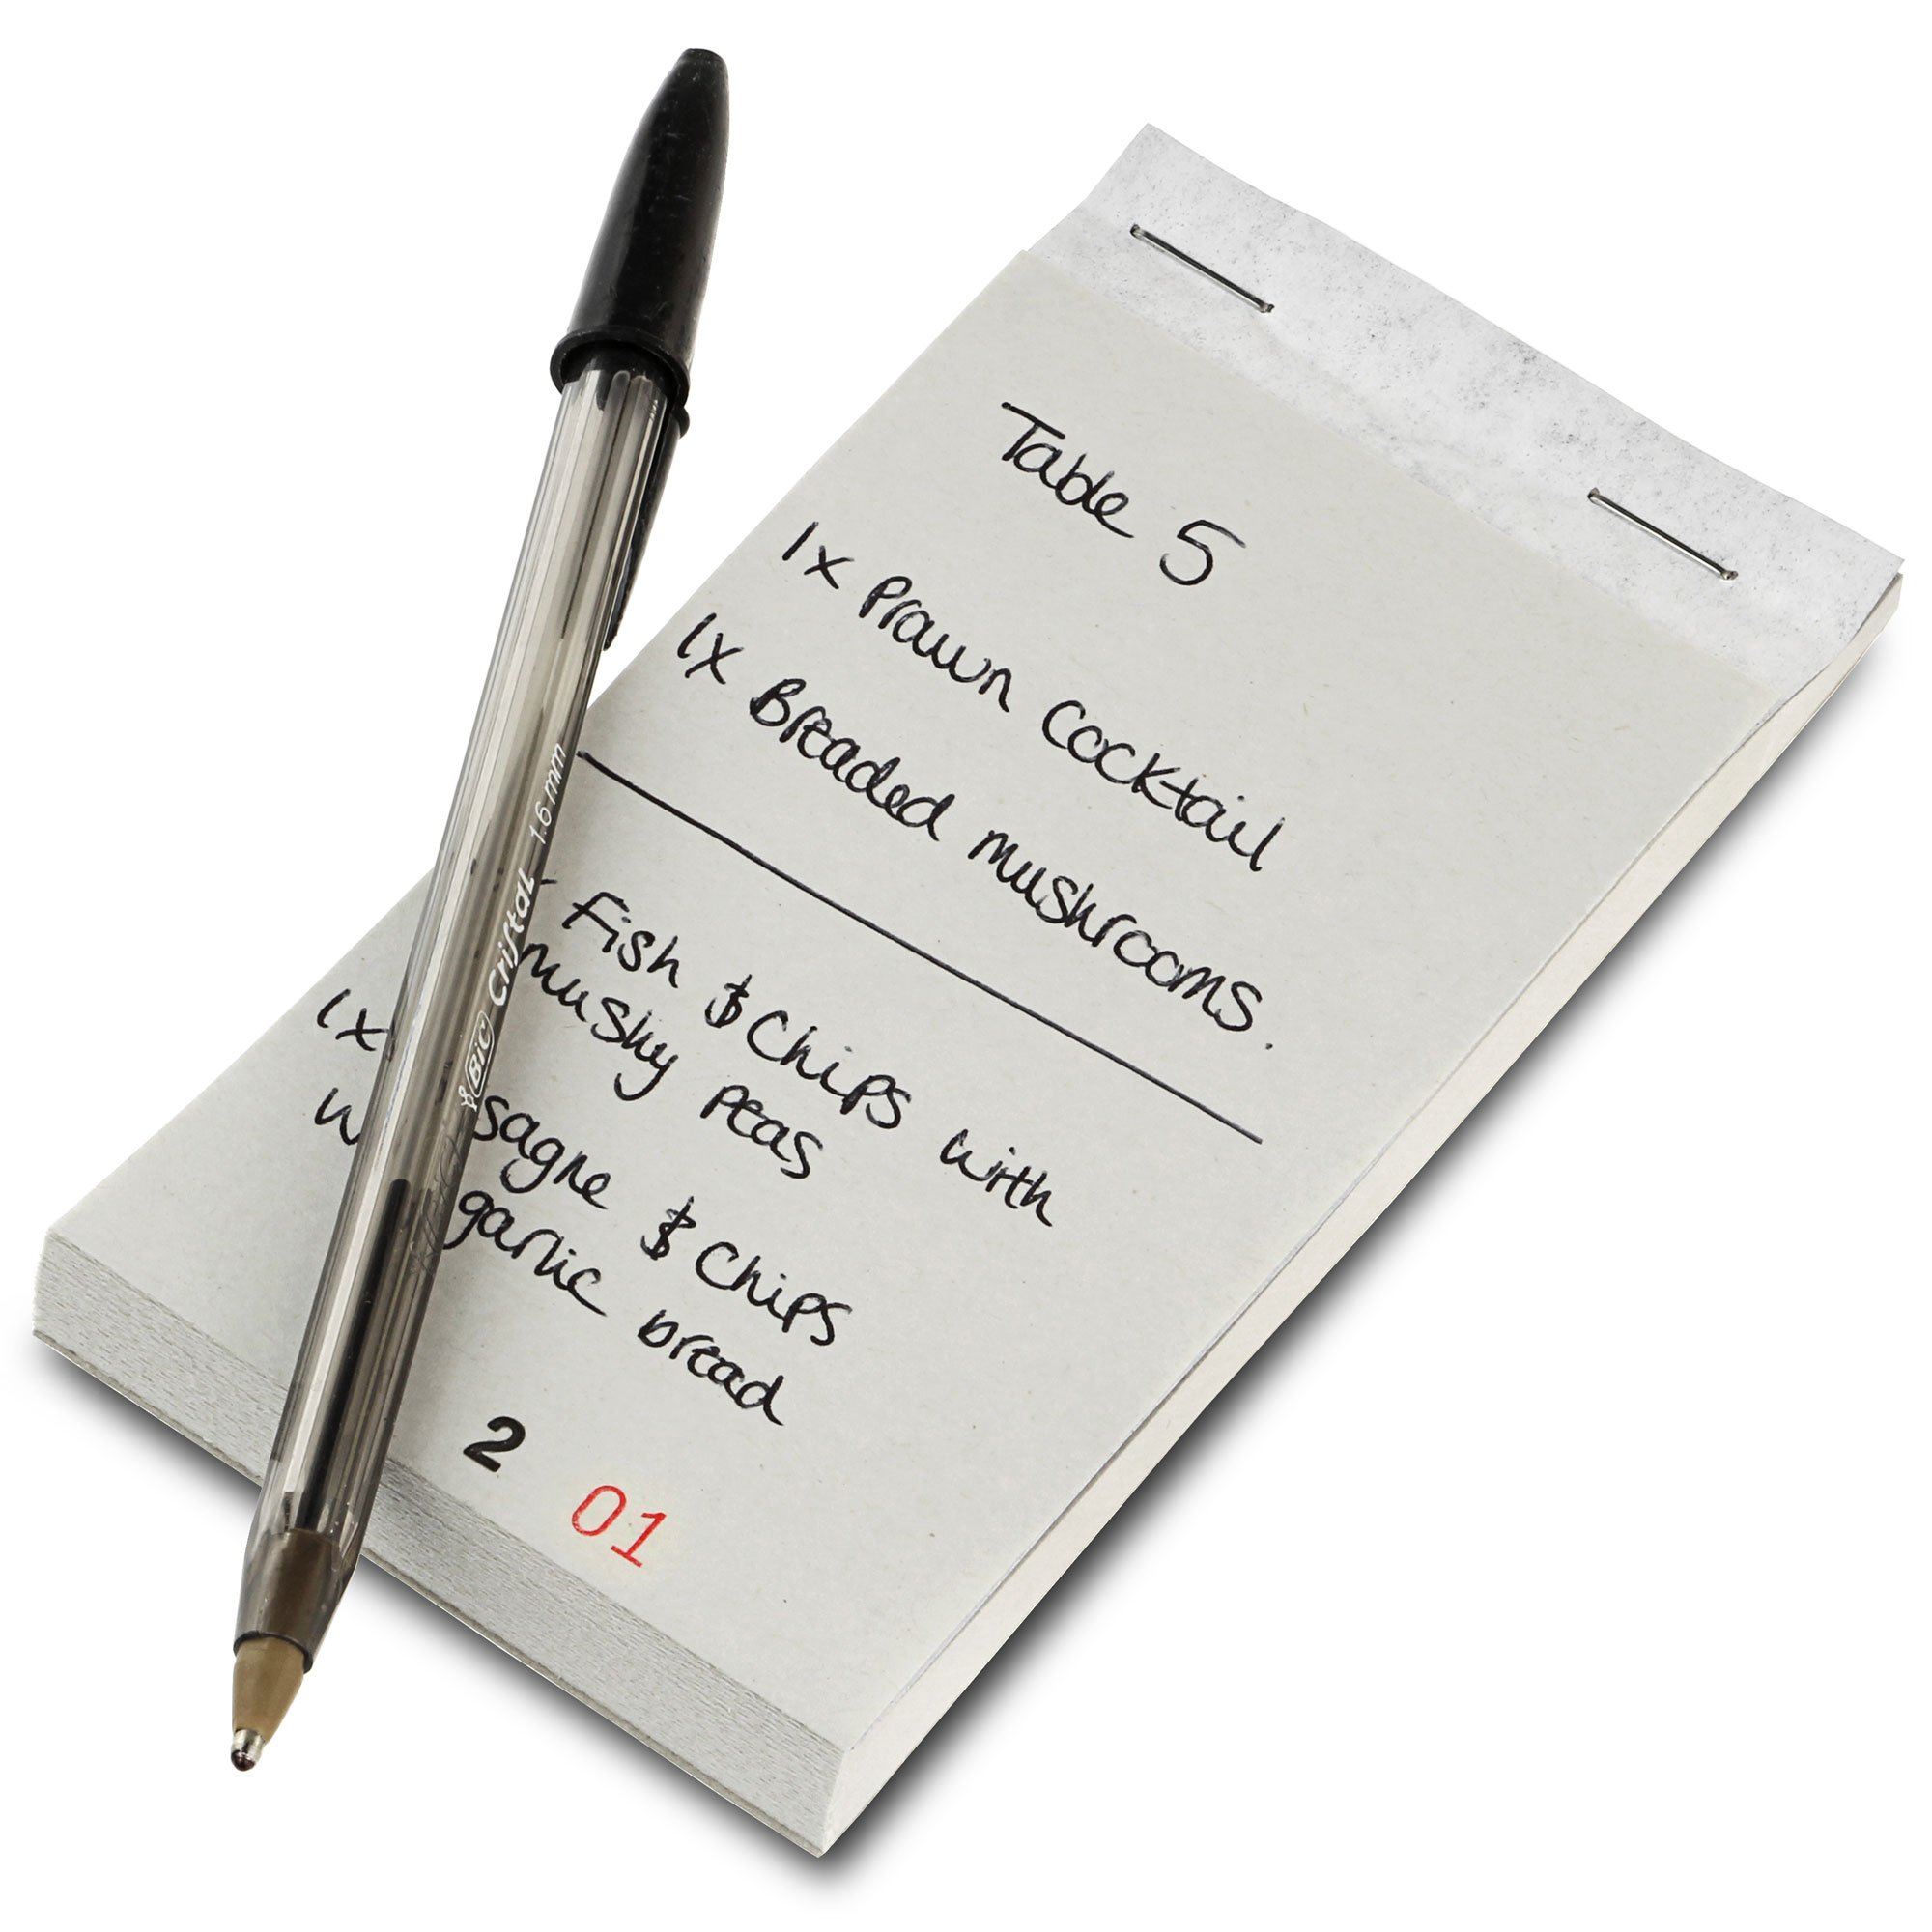 Table 5
1x Prawn cocktail
1x Breaded mushrooms.
Fish & Chips with
mushy peas
1x sagne & Chips
w garlic bread
2
01
BIC Cristal 1.6 mm